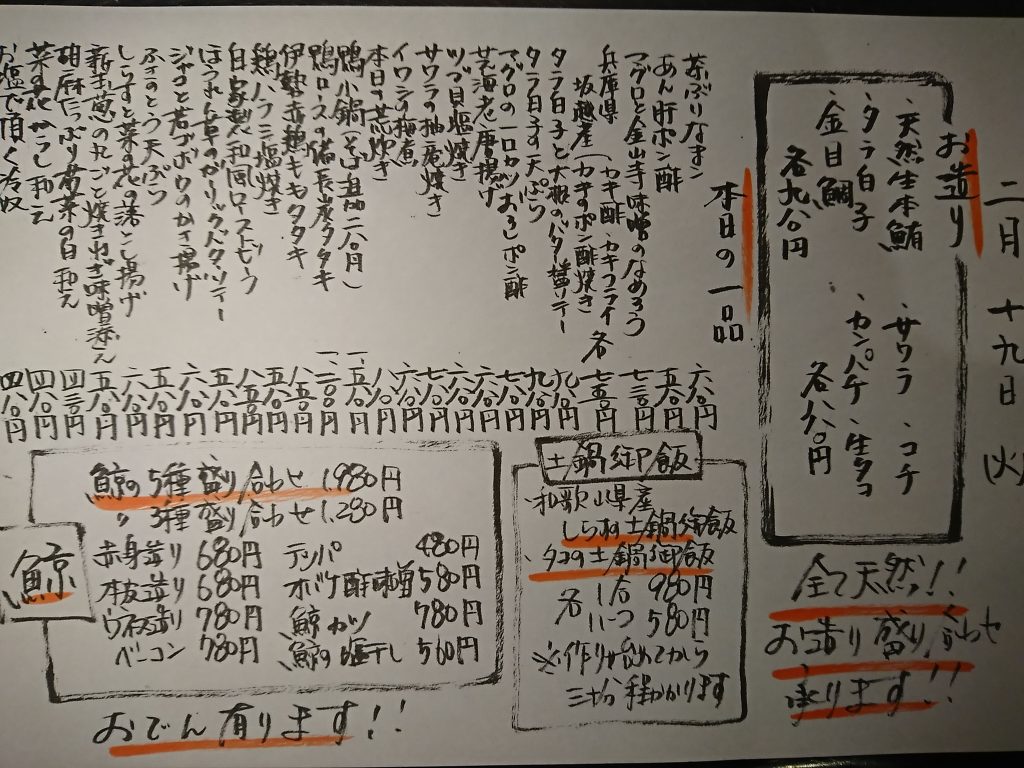 二月十九日(火)
お造り
天然生本鮪
タラ白子
金目鯛
各九八〇円
サワラ コチ
カンパチ 生タコ
各八八〇円
全て天然!!
お造り盛り合わせ
承ります!!
本日の一品
茶ぶりなまこ 六八〇円
あん肝ポン酢 五八〇円
マグロと金山寺味噌のなめろう 七三〇円
兵庫県坂越産(カキ酢・カキフライ
カキのポン酢焼き 各 七五〇円
タラ白子と大根のバタ醤ソテー 九八〇円
タラ白子の天ぷら 九八〇円
マグロの一口カツおろしポン酢 七八〇円
芝海老唐揚げ 六八〇円
ツブ貝塩焼き 六八〇円
サワラの柚庵焼き 七八〇円
イワシの梅煮 六八〇円
本日の荒炊き 八八〇円
鴨小鍋(そば追加二八〇円) 一、五八〇円
鴨ロースの備長炭タタキ 一、二八〇円
伊勢赤鶏モモタタキ 八五〇円
鶏ハラミ塩焼き 五八〇円
自家製和風ローストビーフ 八五〇円
ほうれん草のガーリックバターソテー 五八〇円
ジャコと若ゴボウのかき揚げ 六八〇円
ふきのとう天ぷら 五八〇円
しらすと菜の花の落とし揚げ 六八〇円
新玉葱の丸ごと焼きねぎ味噌添え 五八〇円
胡麻たっぷり春菜の白和え 四三〇円
菜の花からし和え 四八〇円
お塩で頂く冷奴 四八〇円
土鍋御飯
和歌山県産
しらす土鍋御飯
タコの土鍋御飯
各 1合 980円
ハーフ 580円
※作り始めてから
三十分程かかります
鯨
鯨の5種盛り合わせ 1,980円
〃 3種盛り合わせ 1,280円
赤身造り 680円
本皮造り 680円
ウネス造り 780円
ベーコン 780円
テッパ 480円
オバケ酢味噌 580円
鯨カツ 780円
鯨の塩干し 560円
おでん有ります!!